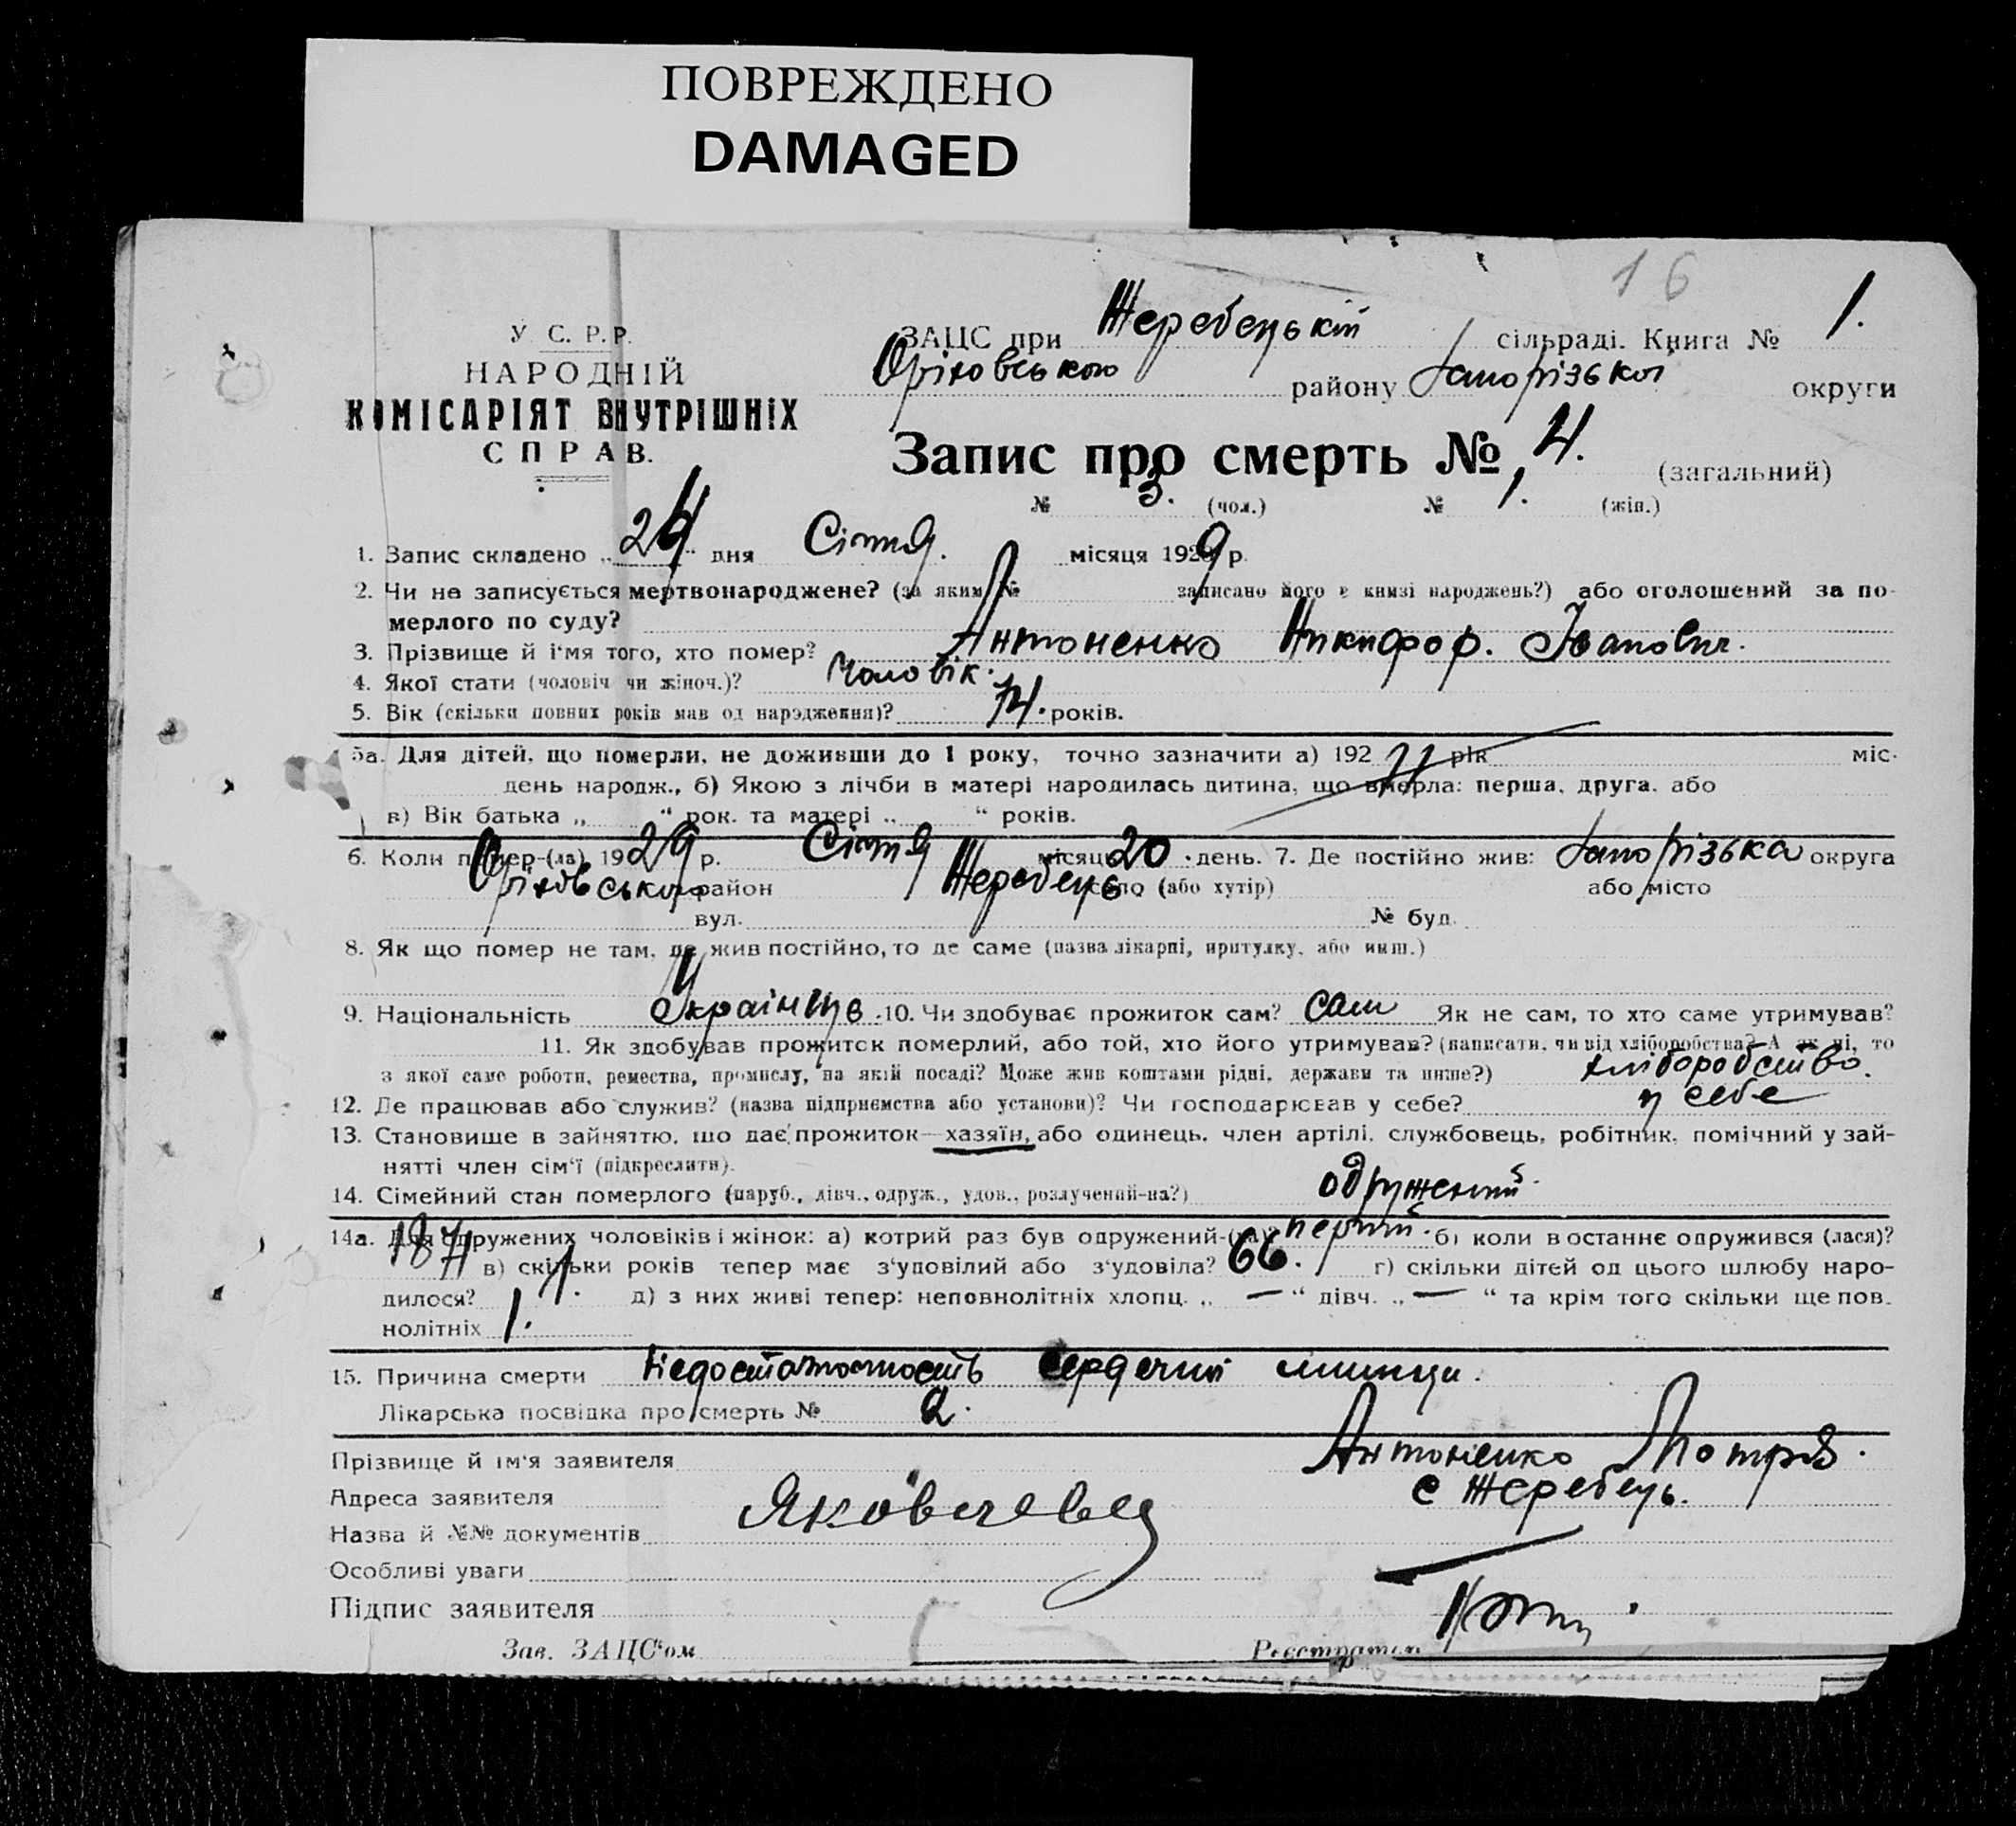 ПОВРЕЖДЕНО
DAMAGED
16
У. С. Р. Р.
НАРОДНІЙ
КОМІСАРІЯТ ВНУТРІШНІХ
СПРАВ.
ЗАЦС при Жеребецькій сільраді. Книга № 1.
Оріховського району Запорізької округи
Запис про смерть № 4. (загальний)
№ 3. (чол.) № 1. (жін.)
1. Запис складено „24“ дня Січня. місяця 1929 р.
2. Чи не записується мертвонароджене? (за яким № записано його в книзі народжень?) або оголошений за по-
мерлого по суду?
3. Прізвище й і'мя того, хто помер? Антоненко Никифор. Іванович.
4. Якої стати (чоловіч чи жіноч.)? Чоловік.
5. Вік (скільки повних років мав од народження)? 74. років.
5а. Для дітей, що померли, не доживши до 1 року, точно зазначити а) 192 рік міс.
день народж., б) Якою з лічби в матері народилась дитина, що вмерла: перша, друга. або
в) Вік батька „ “ рок. та матері „ “ років.
6. Коли помер-(ла) 1929 р. Січня місяця 20. день. 7. Де постійно жив: Запорізька округа
Оріховського район Жеребець село (або хутір) або місто
вул. № буд.
8. Як що помер не там, де жив постійно, то де саме (назва лікарні, притулку, або инш.)
9. Національність Українець. 10. Чи здобуває прожиток сам? сам Як не сам, то хто саме утримував?
11. Як здобував прожиток померлий, або той, хто його утримував? (написати, чи від хліборобства? А як ні, то
з якої саме роботи, ремества, промислу, на якій посаді? Може жив коштами рідні, держави та инше?) хліборобство.
12. Де працював або служив? (назва підприємства або установи)? Чи господарював у себе? у себе
13. Становище в зайняттю, що дає прожиток—хазяїн, або одинець, член артілі, службовець, робітник, помічний у зай-
нятті член сім'ї (підкреслити).
14. Сімейний стан померлого (паруб., дівч., одруж., удов., розлучений-на?) одружений.
14а. Для одружених чоловіків і жінок: а) котрий раз був одружений-(на)? перший. б) коли востаннє одружився (лася)?
1871 в) скільки років тепер має з'уповілий або з'удовіла? 66. г) скільки дітей од цього шлюбу наро-
дилося? 1. д) з них живі тепер: неповнолітніх хлопц. „ — “ дівч. „ — “ та крім того скільки ще пов.
нолітніх 1.
15. Причина смерти Недостаточность сердечной мишци.
Лікарська посвідка про смерть № 2.
Прізвище й ім'я заявителя Антоненко
Адреса заявителя с Жеребець.
Назва й №№ документів
Особливі уваги
Підпис заявителя
Зав. ЗАЦС'ом Реєстратор